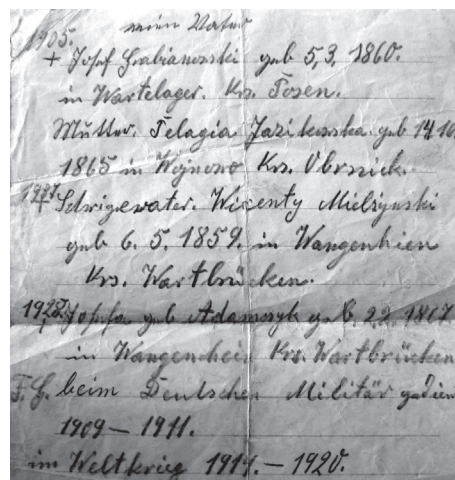 mein Vater
1905.
+ Josef Grabianowski geb 5,3. 1860.
in Wartelager. Krs. Posen.
Mutter. Pelagia Jazikowska geb 14.10.
1865 in Wojnowo Krs. Obrnick.
Schwigervater. Wicenty Mielzynski
geb 6. 5. 1859. in Wangenhien
Krs. Wartbrücken.
Josefa geb Adamczyk geb
in Wangenhein Krs. Wartbrücken
beim Deutschen Militär gedien
1909 – 1911.
im Weltkrieg 1914. – 1920.